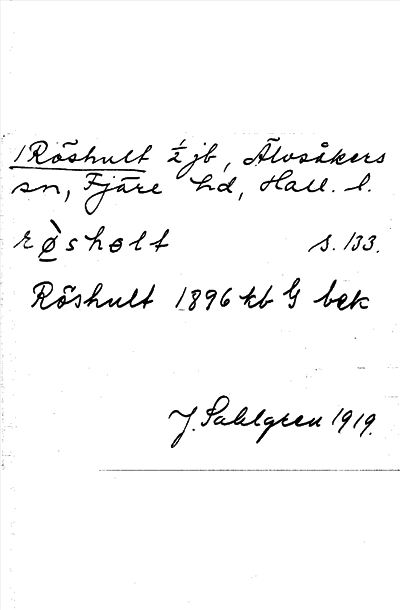 1 Röshult ½ jb, Älvsåkers
sn, Fjäre hd, Hall. l.
rø̀sholt s. 133.
Röshult 1896 kb G bek
J. Sahlgren 1919.